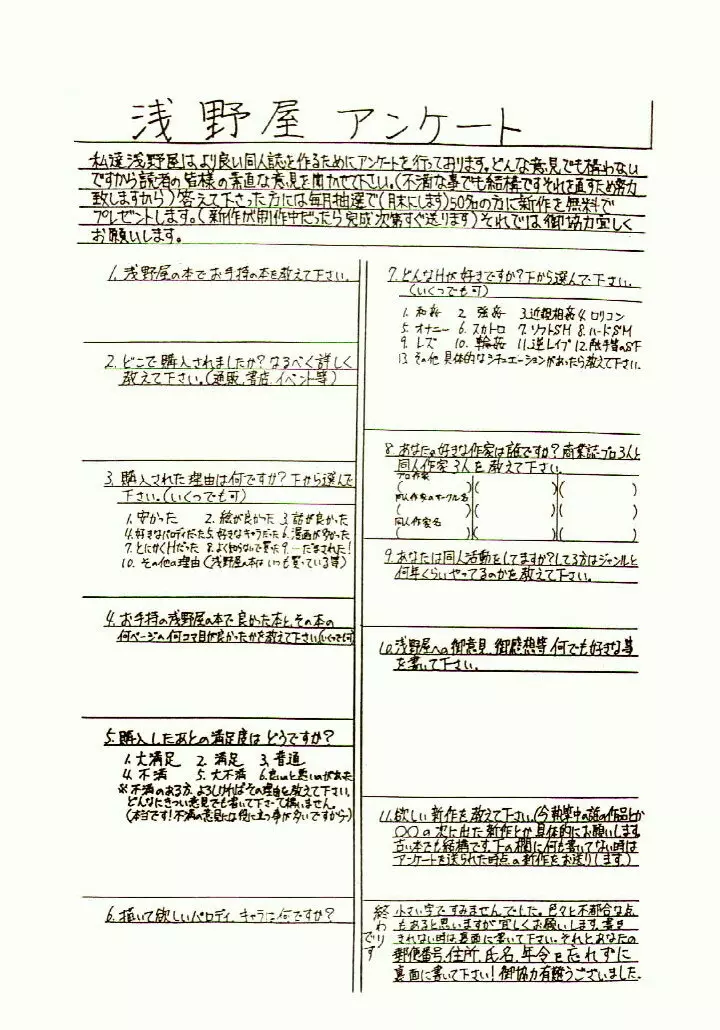 浅野屋 アンケート
私達浅野屋はより良い同人誌を作るためにアンケートを行っております。どんな意見でも構わない
ですから読者の皆様の素直な意見を聞かせて下さい。(不満な事でも結構ですそれを直すため努力
致しますから)答えて下さった方には毎月抽選で(月末にします)50名の方に新作を無料で
プレゼントします。(新作が制作中だったら完成次第すぐ送ります)それでは御協力宜しく
お願いします。
1. 浅野屋の本でお手持の本を教えて下さい。
2. どこで購入されましたか?なるべく詳しく
教えて下さい。(通販、書店、イベント等)
3. 購入された理由は何ですか?下から選んで
下さい。(いくつでも可)
1. 安かった 2. 絵が良かった 3. 話が良かった
4. 好きなパロディだった 5. 好きなキャラだった 6. 漫画が多かった
7. とにかくHだった 8. よく知らないで買った 9. だまされた!
10. その他の理由(浅野屋の本はいつも買っている等)
4. お手持の浅野屋の本で良かった本と、その本の
何ページの何コマ目が良かったかを教えて下さい(いくつでも可)
5. 購入したあとの満足度はどうですか?
1. 大満足 2. 満足 3. 普通
4. 不満 5. 大不満 6. 良いのと悪いのがあった
※不満のある方、よろしければその理由を教えて下さい。
どんなにきつい意見でも書いて下さって構いません。
(本当です!不満の意見には役に立つ事が多いですから)
6. 描いて欲しいパロディ、キャラは何ですか?
7. どんなHが好きですか?下から選んで下さい。
(いくつでも可)
1. 和姦 2. 強姦 3. 近親相姦 4. ロリコン
5. オナニー 6. スカトロ 7. ソフトSM 8. ハードSM
9. レズ 10. 輪姦 11. 逆レイプ 12. 触手等のSF
13. その他 具体的なシチュエーションがあったら教えて下さい。
8. あなたの好きな作家は誰ですか?商業誌・プロ3人と
同人作家3人を教えて下さい。
プロ作家
( )( )( )
同人作家のサークル名
( )( )( )
同人作家名
( )( )( )
9. あなたは同人活動をしてますか?してる方はジャンルと
何年くらいやってるのかを教えて下さい。
10. 浅野屋への御意見、御感想等何でも好きな事
を書いて下さい。
11. 欲しい新作を教えて下さい。(今執筆中の話の作品とか
〇〇の次に出た新作とか具体的にお願いします。
古い本でも結構です。下の欄に何も書いてない時は
アンケートを送られた時点の新作をお送りします。)
終わりです
小さい字ですみませんでした。色々と不都合な点
もあると思いますが宜しくお願いします。書き
きれない時は、裏面に書いて下さい。それとあなたの
郵便番号、住所、氏名、年令を忘れずに
裏面に書いて下さい!御協力有難うございました。